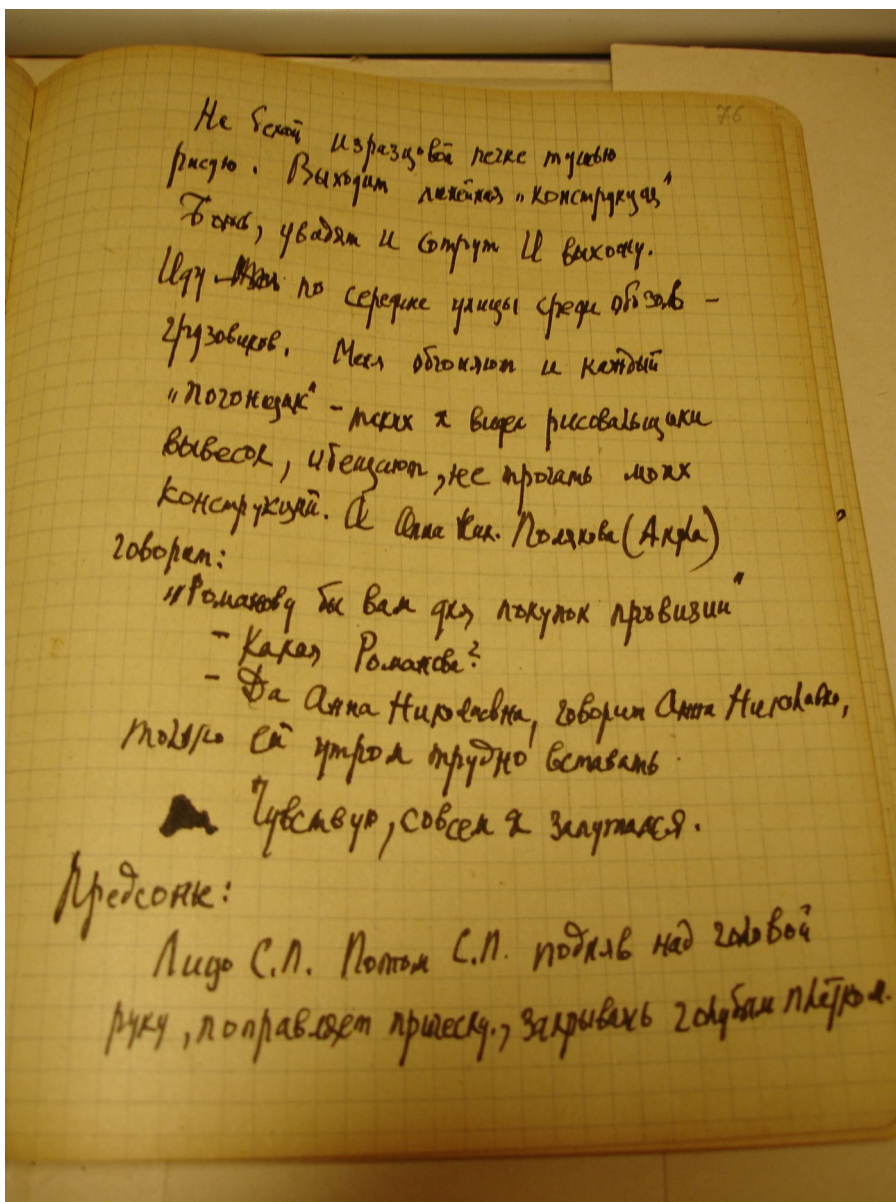 76
На белой изразцовой печке тушью
рисую. Выходит линейная „конструкция"
Боюсь, увидят и сотрут И выхожу.
Иду по середине улицы среди обозов -
грузовиков. Меня обгоняют и каждый
„погонщик" - таких я видел рисовальщики
вывесок, обещают, не трогать моих
конструкций. А Анна Ник. Полякова (Анфа)
говорит:
„Романову бы вам для покупок провизии"
- Какая Романова?
- Да Анна Николаевна, говорит Анна Николавна,
только ей утром трудно вставать
Чувствую, совсем я запутался.
Предсонье:
Лицо С.П. Потом С.П. подняв над головой
руку, поправляет прическу., закрываясь голубым платком.